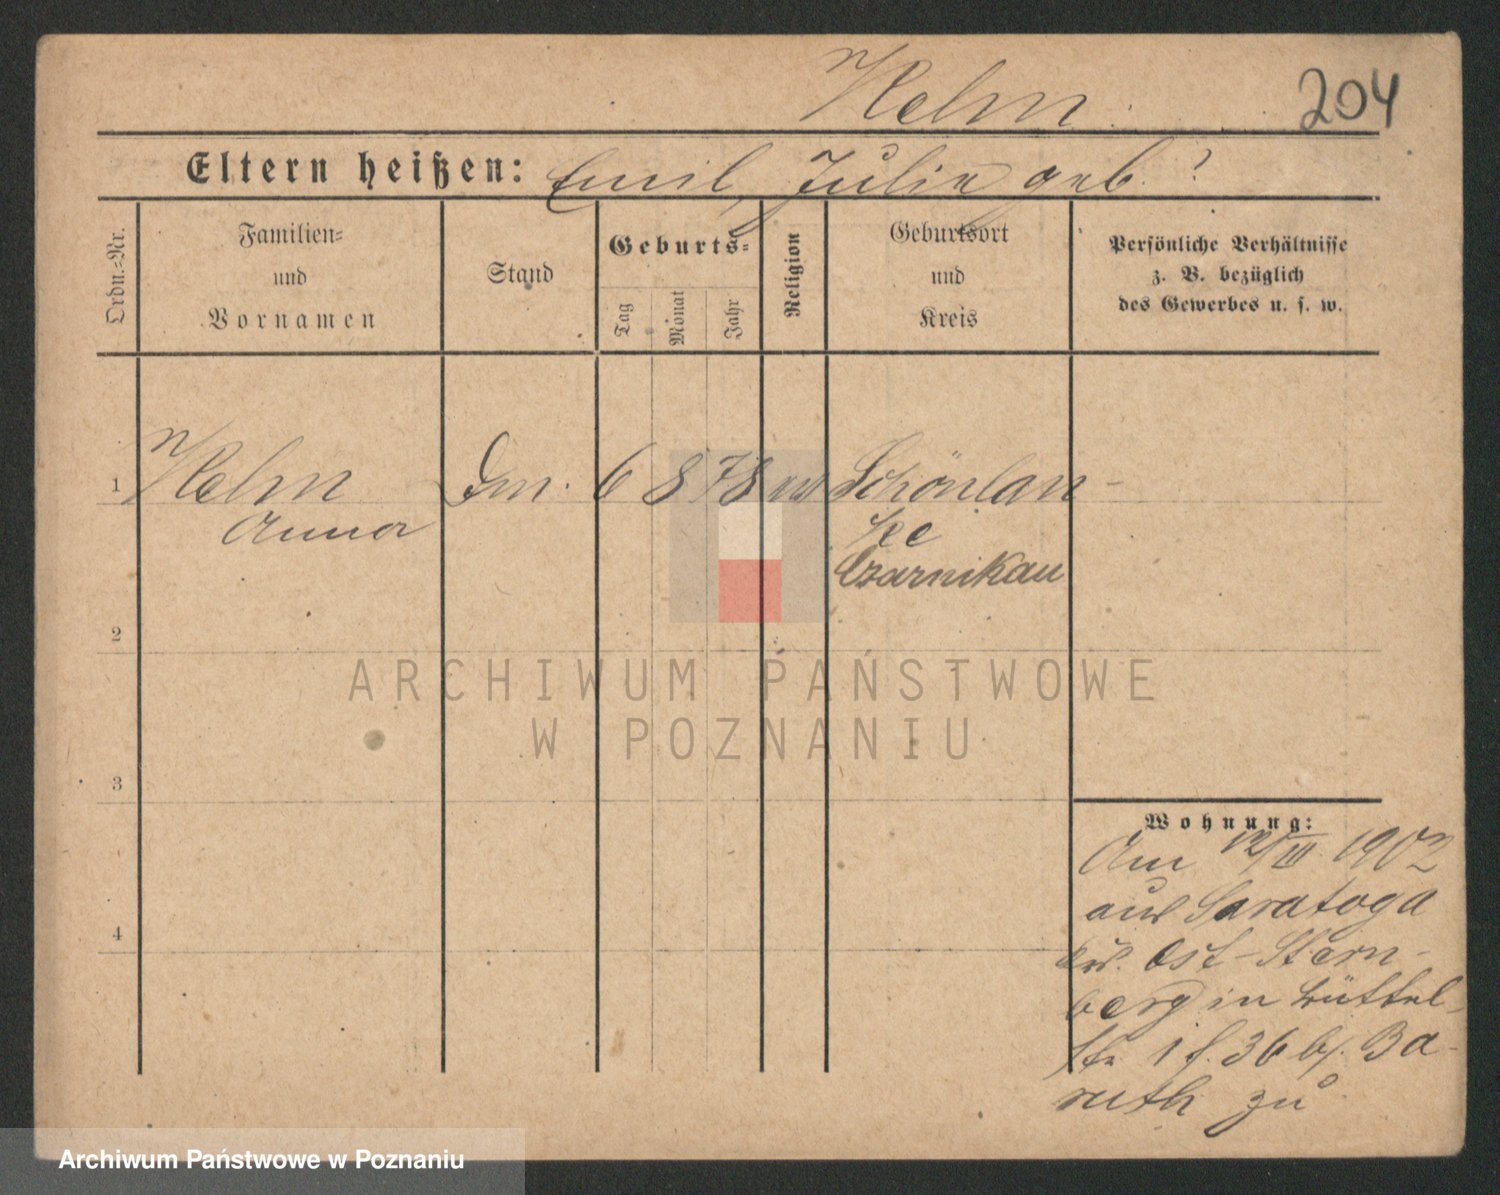 Helm
204
Eltern heißen: Emil, Julie geb. ?
Ordn.=Nr.
Familien=
und
Vornamen
Stand
Geburts=
Tag
Monat
Jahr
Religion
Geburtsort
und
Kreis
Persönliche Verhältnisse
z. B. bezüglich
des Gewerbes u. s. w.
1 Helm 6 8 78 Schönlan-
Anna ke
Czarnikau
2
ARCHIWUM PAŃSTWOWE
W POZNANIU
3
Wohnung:
Am 12/III 1902
aus Saratoga
Krs. Ost-Stern-
berg in Büttel-
str 1 f. 36 b/. Ba-
ruth zu
4
Archiwum Państwowe w Poznaniu